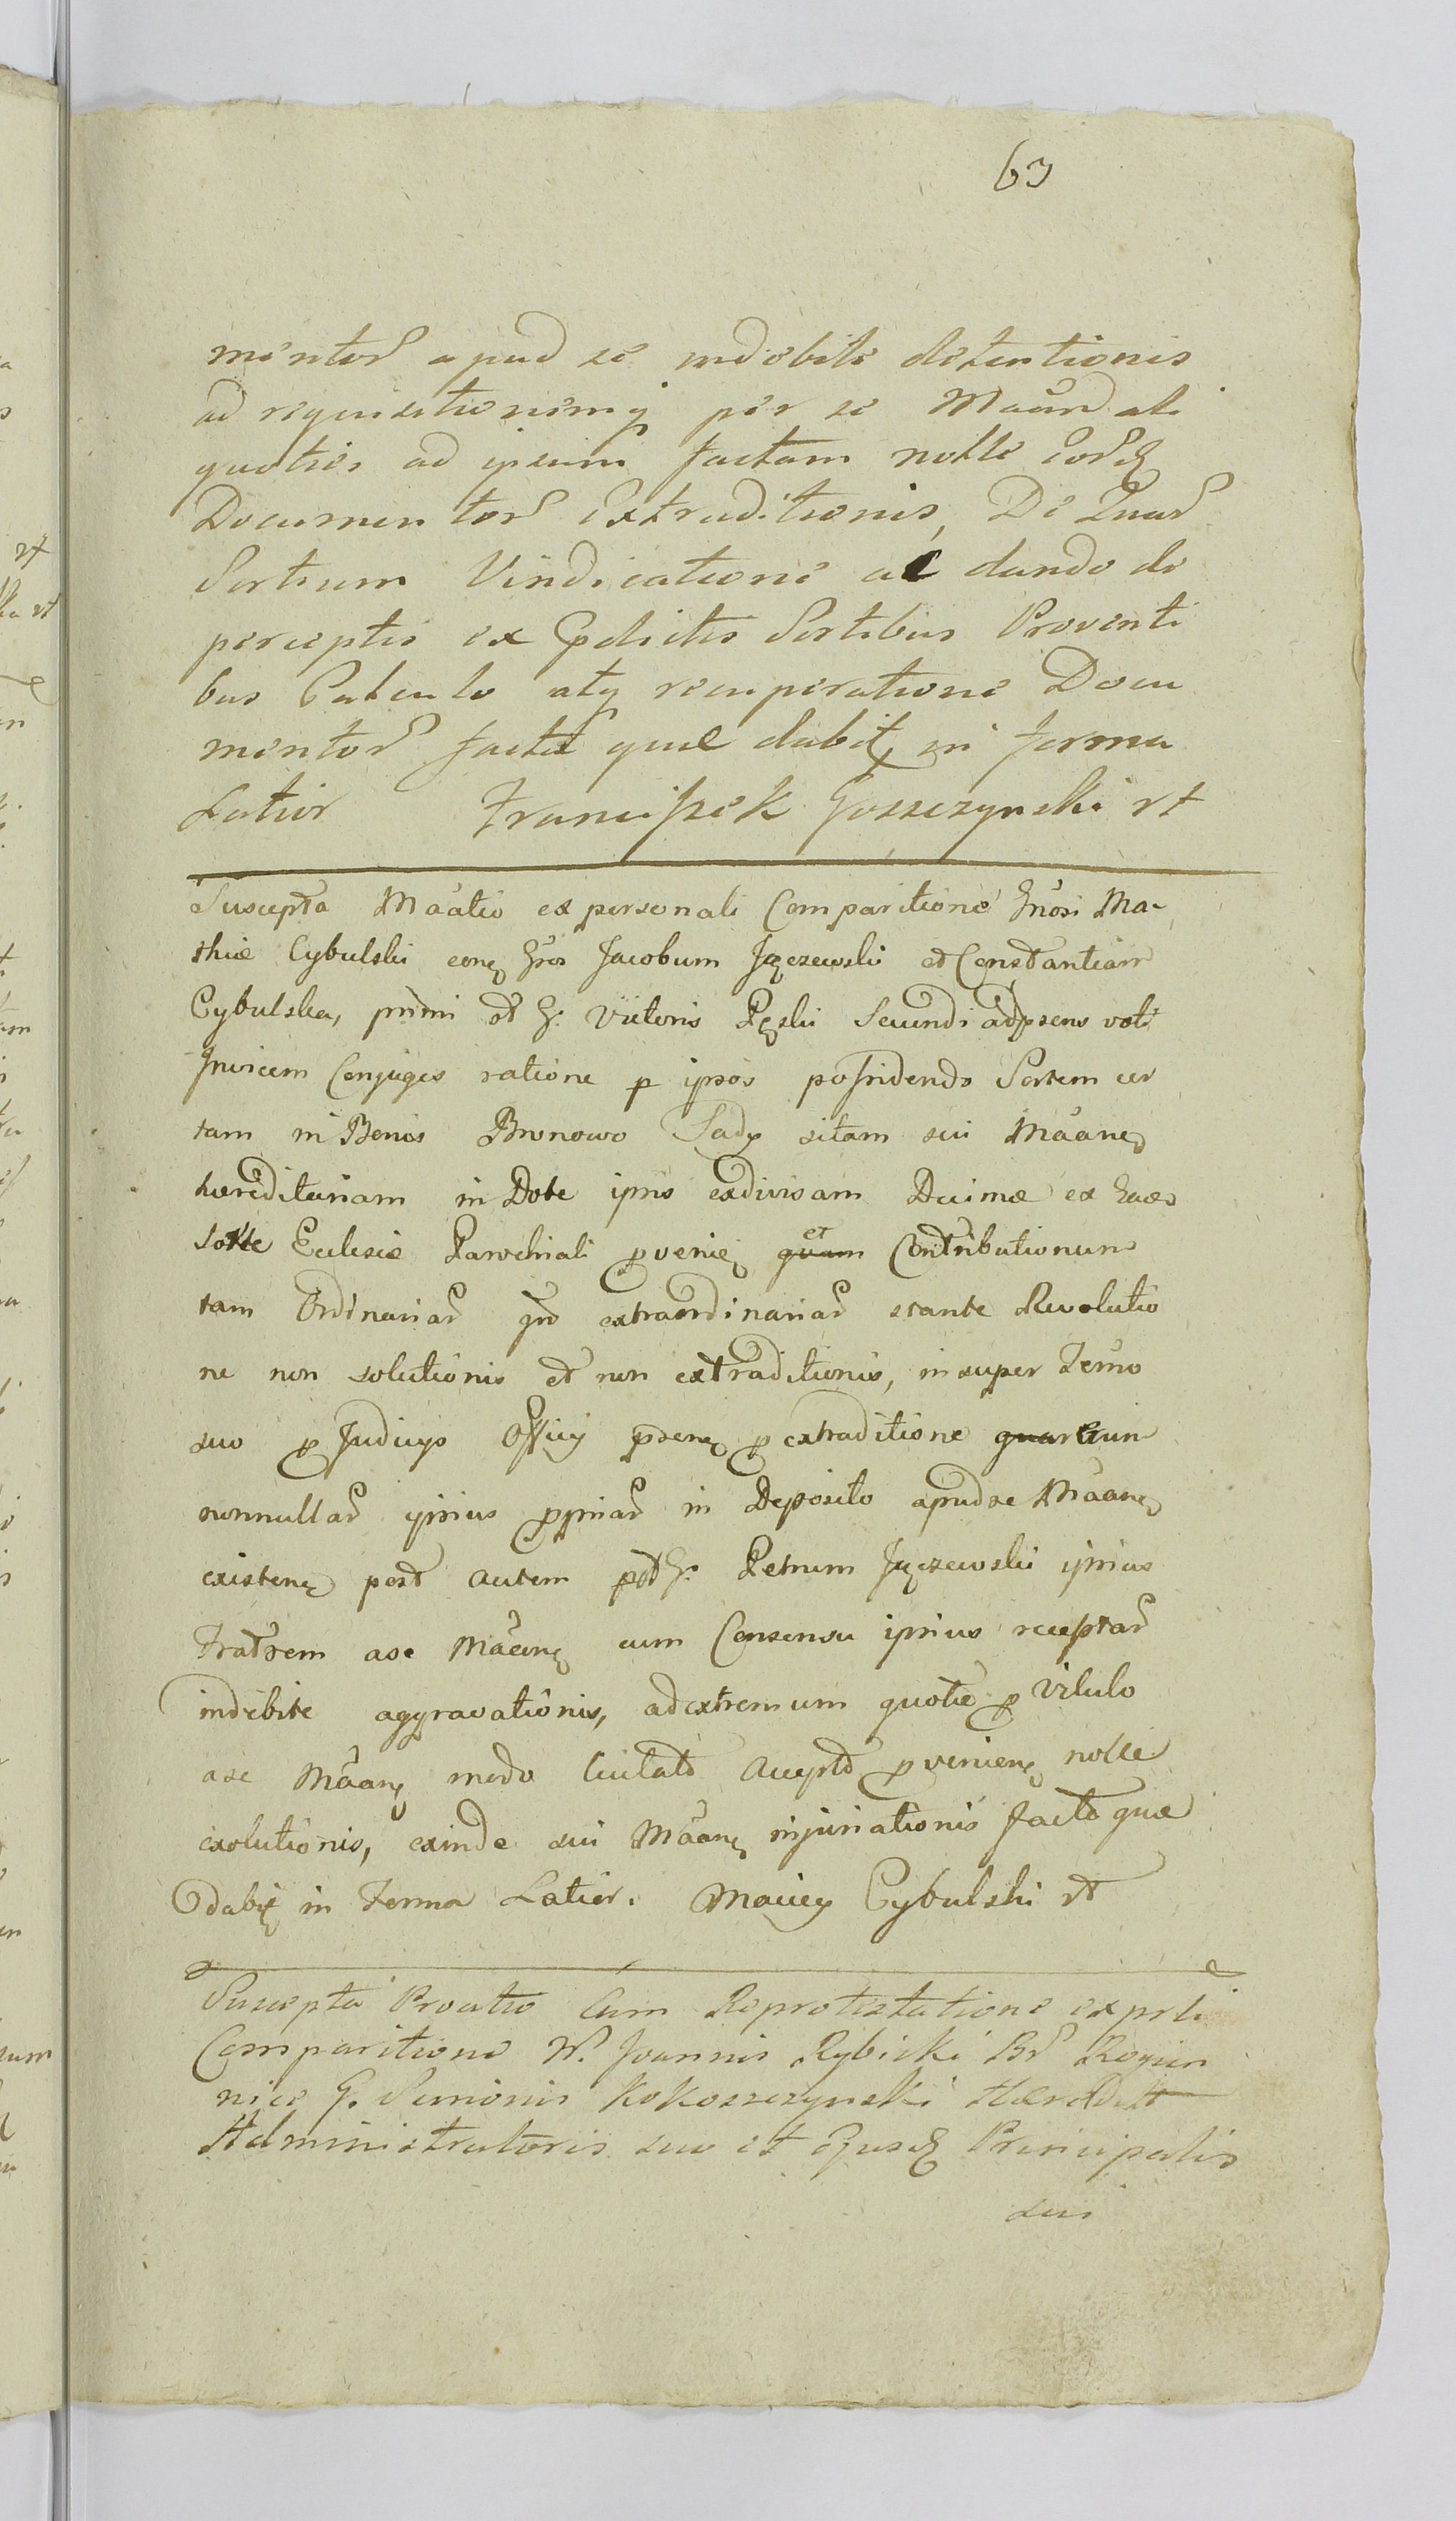 63
mentor apud se indebite detentionis
ad requisitionemq per se Maand ali
quoties ad ipsum factam nolle eord
Documentor extraditionis, De Quar
Sortium Vindicatione ac dando de
perceptis ex Pdictis Sortibus Proventi
bus Calculo atq recuperatione Docu
mentor facta quæ dabit in forma
Latior Franciszek Gosszczynski rt
Suscepta Maatio ex personali Comparitione Gnosi Ma-
thiæ Cybulski conq Gsos Jacobum Jęczewski et Constantiam
Cybulska, primi et G. Victoris Pęski Secundi adpsens voti
Invicem Conjuges ratione p ipsos possidendo Sortem cer
tam in Bonis Bronowo Sady sitam sui Maanq
hæreditariam in Dote ipsis exdivisam Decimæ ex
Sorte Eclesiæ Parochiali pvenieq quam et Contributionum
tam Ordinariar qm extraordinariar stante Revolutio
ne non solutionis et non extraditionis, insuper Termo
suo p Judicys Officy psenq p extraditione quarum
nonnullar ipsius ppriar in Deposito apudse Maanq
existenq post autem pdt G. Petrum Jęczewski ipsius
Fratrem ase Maanq cum Consensu ipsius receptar
indebite aggravationis, adextremum quotæ p Vitulo
ase Maanq modo Licitato Accepto pvenienq nolle
exolutionis, exinde sui Maanq injuriationis facto quæ
dabit in Forma Latior. Maciey Cybulski rt
Suscepta Proatio Cum Reprotestatione ex prli
Comparitione W. Joannis Rybicki Br
nice G. Simonis Kokoszczynski
Administratoris suo et Ejusd Principalis
sui